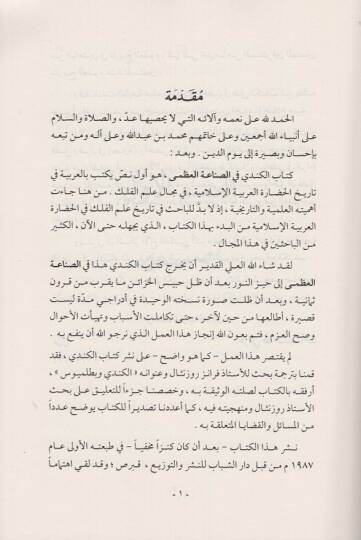 مُقَدِّمَة
الحمد لله على نعمه وآلائه التي لا يحصيها عدّ، والصلاة والسلام
على أنبياء الله أجمعين وعلى خاتمهم محمد بن عبدالله وعلى آله ومن تبعه
بإحسان وبصيرة إلى يوم الدين. وبعد:
كتاب الكندي في الصناعة العظمى، هو أول نصّ يكتب بالعربية في
تاريخ الحضارة العربية الإسلامية، في مجال علم الفلك. من هنا جاءت
أهميته العلمية والتاريخية، إذ لا بدَّ للباحث في تاريخ علم الفلك في الحضارة
العربية الإسلامية من البدء بهذا الكتاب، الذي يجهله حتى الآن، الكثير
من الباحثين في هذا المجال.
لقد شاء الله العلي القدير أن يخرج كتاب الكندي هذا في الصناعة
العظمى إلى حيز النور بعد أن ظل حبيس الخزائن ما يقرب من قرون
ثمانية، وبعد أن ظلت صورة نسخته الوحيدة في أدراجي مدّة ليست
قصيرة، أطالعها من حين لآخر، حتى تكاملت الأسباب وتهيأت الأحوال
وصح العزم، فتم بعون الله إنجاز هذا العمل الذي نرجو الله أن ينفع به.
لم يقتصر هذا العمل - كما هو واضح - على نشر كتاب الكندي، فقد
قمنا بترجمة بحث للأستاذ فرانز روزنثال وعنوانه «الكندي وبطلميوس»،
أرفقه بالكتاب لصلته الوثيقة به، وخصصنا جزءاً للتعليق على بحث
الأستاذ روزنثال ومنهجيته فيه، كما أعددنا تصديراً للكتاب يوضح عدداً
من المسائل والقضايا المتعلقة به.
نشر هذا الكتاب - بعد أن كان كنزاً مخفياً - في طبعته الأولى عام
١٩٨٧ م من قبل دار الشباب للنشر والتوزيع، قبرص؛ وقد لقي اهتماماً
- ١ -